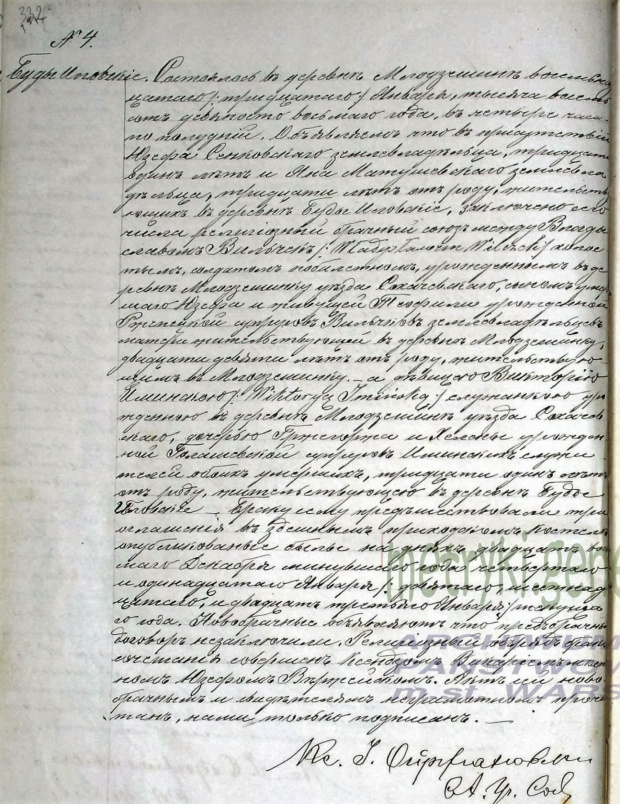 332
№ 4.
Буды Иловскіе. Состоялось въ деревнѣ Млодзешинъ восемнад-
цатаго /: тридцатаго :/ Января, тысяча восемь
сотъ девяносто восьмаго года, въ четыре часа
по полудни. Объявляемъ что въ присутствіи
Юзефа Сенковскаго землевладѣльца, тридцати
одинъ лѣтъ и Яна Матушевскаго землевла-
дѣльца, тридцати лѣтъ отъ роду, жительству-
ющихъ въ деревнѣ Буды Иловскіе, заключено сего
числа религіозный брачный союзъ между Влады-
славомъ Вильчекъ /: Władysławem Wilczek :/ холос-
тымъ, солдатомъ запаснымъ, урожденнымъ въ де-
ревнѣ Млодзешинку уѣзда Сохачевскаго, сыномъ умер-
шаго Юзефа и живущей Теофили урожденной
супруговъ Вильчковъ землевладѣльцевъ
матери жительствующей въ деревнѣ Млодзешинку,
двадцати девяти лѣтъ отъ роду, жительствую-
щимъ въ Млодзешинку – а дѣвицею Викторіею
Иминскою /: Wiktorya Imińską :/ служанкою уро-
жденною въ деревнѣ Млодзешинъ уѣзда Сохачев-
скаго, дочерью Гржегоржа и Хелены урожден-
ной супруговъ Иминскихъ служи-
телей обоихъ умершихъ, тридцати одинъ лѣтъ
отъ роду, жительствующею въ деревнѣ Буды
Иловскіе. Браку сему предшествовали три
оглашенія въ здѣшнемъ приходскомъ костелѣ
опубликованные были на дняхъ двадцать вось-
маго Декабря минувшаго года четвертаго
и одинадцатаго Января /: девятаго, шестнад-
цатаго, и двадцать третьяго Января :/ текуща-
го года. Новобрачные объявляютъ что предбрачный
договоръ незаключили. Религіозный обрядъ брако-
сочетанія совершенъ Ксендзомъ Викаріемъ мѣст-
нымъ Юзефомъ . Актъ сей ново-
брачнымъ и свидѣтелямъ неграмотнымъ проч-
танъ, нами только подписанъ. –
Кс. І.
С. А. Гр. Сов.
ARCHIWUM
m.st. WARS